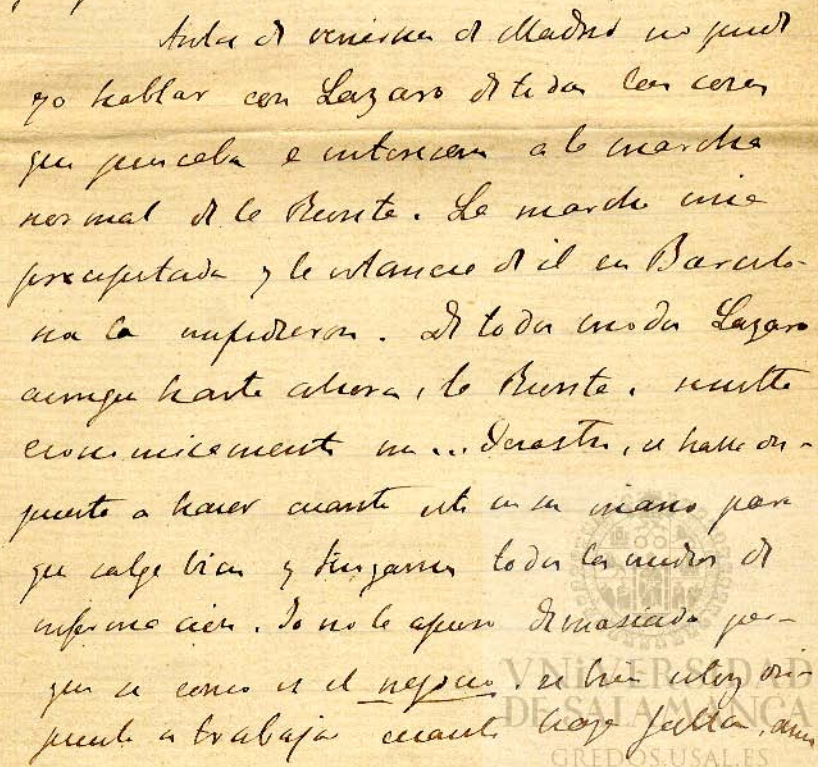 Antes de venirme de Madrid no pude
yo hablar con Lazaro de todas las cosas
que para ella e interesen a la marcha
normal de la Revista. La marcha mia
precipitada y la estancia de el en Barcelo-
na lo impidieron. De todos modos Lazaro
aunque hasta ahora, la Revista, resulta
economicamente un... desastre, se halla dis-
puesto a hacer cuanto este en su mano para
que salga bien y tengamos todos los medios de
informacion. Yo no le apuro demasiado por-
que se como es el negocio. si bien estoy dis-
puesto a trabajar cuanto haga falta,
VNIVERSIDAD
DE SALAMANCA
GREDOS.USAL.ES